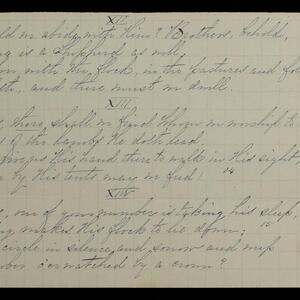 XII
ld we abide with Him? Brothers, behold,
ng is a Shepherd as well,
on with the flock, in the pastures and fol
th, and there must we dwell.
XIII
, there shall we find Whom we worship to
d of the lambs He doth lead.
Himself His hand there to walk in His sight
by His tents may we feed! 14
XIV
, one of your number is taking his sleep,
g, makes His flock to lie down;
circle in silence, and, sorrow and weep
o'erwatched by a crown?